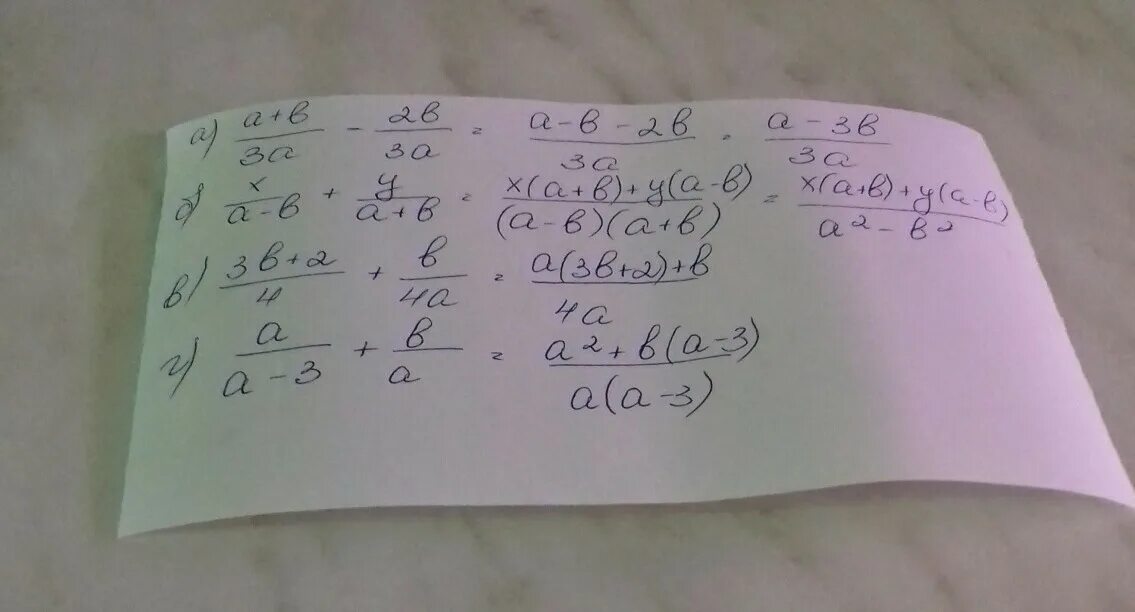 а) (a+b)/(3a) - (2b)/(3a) = (a-b-2b)/(3a) = (a-3b)/(3a)
б) x/(a-b) + y/(a+b) = (x(a+b)+y(a-b))/((a-b)(a+b)) = (x(a+b)+y(a-b))/(a²-b²)
в) (3b+2)/4 + b/(4a) = (a(3b+2)+b)/(4a)
г) a/(a-3) + b/a = (a²+b(a-3))/(a(a-3))